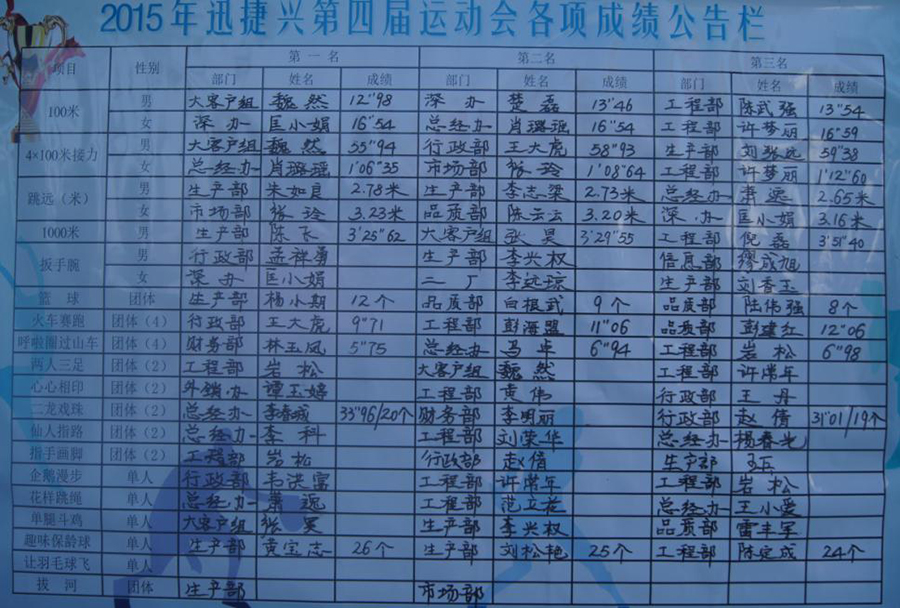 2015年迅捷兴第四届运动会各项成绩公告栏
项目 性别 第一名 第二名 第三名
部门 姓名 成绩 部门 姓名 成绩 部门 姓名 成绩
100米 男 大客户组 魏然 12"98 深办 楚磊 13"46 工程部 陈武强 13"54
女 深办 匡小娟 16"54 总经办 肖璐瑶 16"54 工程部 许梦丽 16"59
4×100米接力 男 大客户组 魏然 55"94 行政部 王大虎 58"93 生产部 刘张远 59"38
女 总经办 肖璐瑶 1'06"35 市场部 张玲 1'08"64 工程部 许梦丽 1'12"60
跳远（米） 男 生产部 朱如良 2.78米 生产部 李志梁 2.73米 总经办 萧远 2.65米
女 市场部 张玲 3.23米 品质部 陈云云 3.20米 深办 匡小娟 3.16米
1000米 男 生产部 陈飞 3'25"62 大客户组 张昊 3'29"55 工程部 倪磊 3'51"40
扳手腕 男 行政部 孟祥勇 生产部 李兴权 信息部 缪成旭
女 深办 匡小娟 二厂 李远琼 生产部 刘香玉
篮球 团体 生产部 杨小期 12个 品质部 白根武 9个 品质部 陆伟强 8个
火车赛跑 团体（4） 行政部 王大虎 9"71 工程部 彭海盟 11"06 品质部 彭建红 12"06
呼啦圈过山车 团体（4） 财务部 林玉凤 5"75 总经办 马卓 6"94 工程部 岩松 6"98
两人三足 团体（2） 工程部 岩松 大客户组 魏然 工程部 许常年
心心相印 团体（2） 外销办 谭玉婷 工程部 黄伟 行政部 王丹
二龙戏珠 团体（2） 总经办 李春城 33"96/20个 财务部 李明丽 行政部 赵倩 31"01/19个
仙人指路 团体（2） 总经办 李科 工程部 刘荣华 总经办 杨春光
指手画脚 团体（2） 工程部 岩松 行政部 赵倩 生产部
企鹅漫步 单人 行政部 韦洪富 工程部 许常年 工程部 岩松
花样跳绳 单人 总经办 萧远 工程部 范立君 总经办 王小爱
单腿斗鸡 单人 大客户组 张军 生产部 李兴权 品质部 雷丰军
趣味保龄球 单人 生产部 黄宝志 26个 生产部 刘松艳 25个 工程部 陈定成 24个
让羽毛球飞 单人
拔河 团体 生产部 市场部